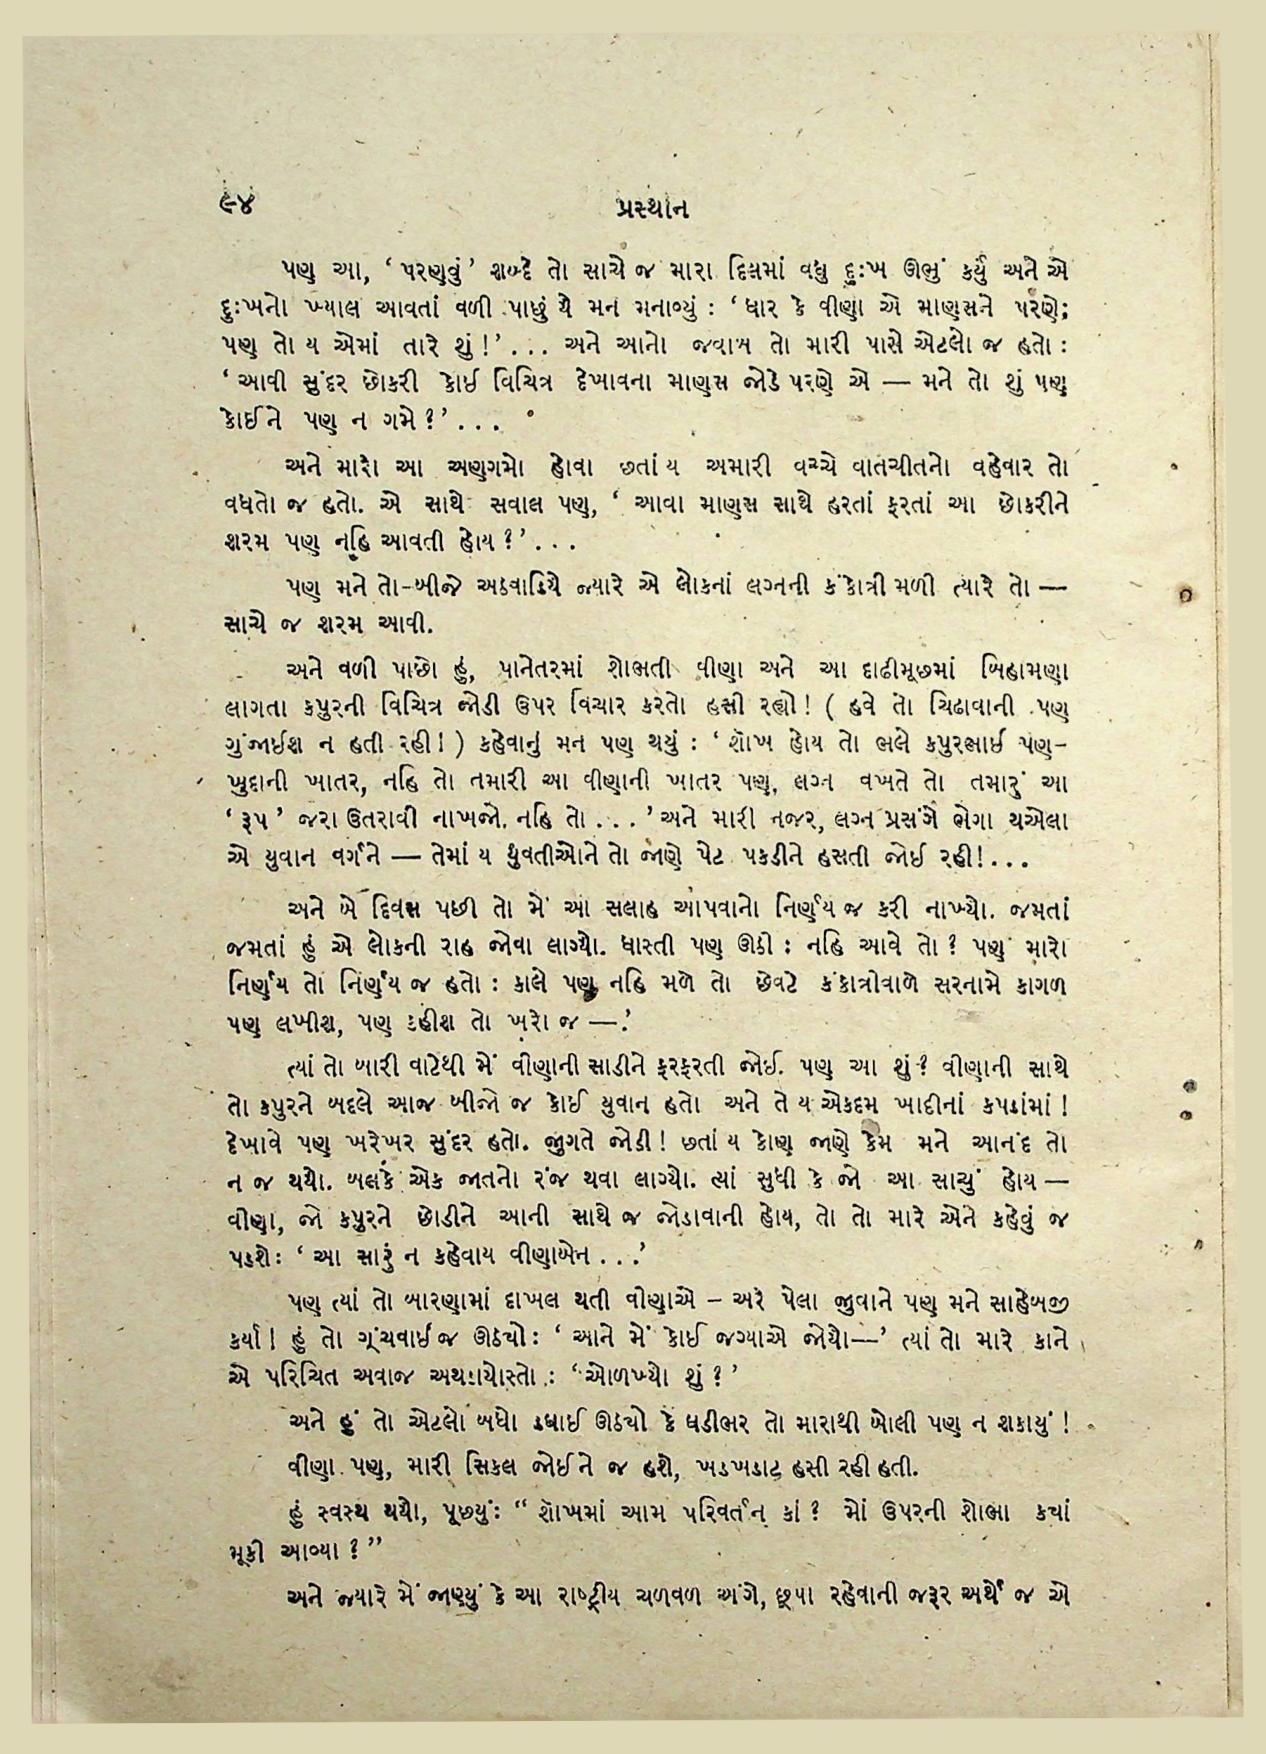 ૯૪
પ્રસ્થાન
પણ આ, ‘ પરણવું ’ શબ્દે તો સાચે જ મારા દિલમાં વધુ દુઃખ ઊભું કર્યું અને એ
દુઃખનો ખ્યાલ આવતાં વળી પાછું યે મન મનાવ્યું : ‘ ધાર કે વીણા એ માણસને પરણે;
પણ તો ય એમાં તારે શું ! ’ . . . અને આનો જવાબ તો મારી પાસે એટલો જ હતો :
‘ આવી સુંદર છોકરી કોઈ વિચિત્ર દેખાવના માણસ જોડે પરણે એ — મને તો શું પણ
કોઈને પણ ન ગમે ? ’ . . .
અને મારો આ અણગમો હોવા છતાં ય અમારી વચ્ચે વાતચીતનો વહેવાર તો
વધતો જ હતો. એ સાથે સવાલ પણ, ‘ આવા માણસ સાથે હરતાં ફરતાં આ છોકરીને
શરમ પણ નહિ આવતી હોય ? ’ . . .
પણ મને તો-બીજે અઠવાડિયે જ્યારે એ લોકનાં લગ્નની કંકોત્રી મળી ત્યારે તો —
સાચે જ શરમ આવી.
અને વળી પાછો હું, પાનેતરમાં શોભતી વીણા અને આ દાઢીમૂછમાં બિહામણા
લાગતા કપુરની વિચિત્ર જોડી ઉપર વિચાર કરતો હસી રહ્યો ! ( હવે તો ચિઢાવાની પણ
ગુંજાઈશ ન હતી રહી ! ) કહેવાનું મન પણ થયું : ‘ શૉખ હોય તો ભલે કપુરભાઈ પણ-
ખુદાની ખાતર, નહિ તો તમારી આ વીણાની ખાતર પણ, લગ્ન વખતે તો તમારું આ
‘ રૂપ ’ જરા ઉતરાવી નાખજો. નહિ તો . . . ’ અને મારી નજર, લગ્ન પ્રસંગે ભેગા થએલા
એ યુવાન વર્ગને — તેમાં ય યુવતીઓને તો જાણે પેટ પકડીને હસતી જોઈ રહી ! . . .
અને બે દિવસ પછી તો મેં આ સલાહ આપવાનો નિર્ણય જ કરી નાખ્યો. જમતાં
જમતાં હું એ લોકની રાહ જોવા લાગ્યો. ધાસ્તી પણ ઊઠી : નહિ આવે તો ? પણ મારો
નિર્ણય તો નિર્ણય જ હતો : કાલે પણ નહિ મળે તો છેવટે કંકોત્રીવાળે સરનામે કાગળ
પણ લખીશ, પણ કહીશ તો ખરો જ —.’
ત્યાં તો બારી વાટેથી મેં વીણાની સાડીને ફરફરતી જોઈ. પણ આ શું ? વીણાની સાથે
તો કપુરને બદલે આજ બીજો જ કોઈ યુવાન હતો અને તે ય એકદમ ખાદીનાં કપડાંમાં !
દેખાવે પણ ખરેખર સુંદર હતો. જુગતે જોડી ! છતાં ય કોણ જાણે કેમ મને આનંદ તો
ન જ થયો. બલકે એક જાતનો રંજ થવા લાગ્યો. ત્યાં સુધી કે જો આ સાચું હોય —
વીણા, જો કપુરને છોડીને આની સાથે જ જોડાવાની હોય, તો તો મારે એને કહેવું જ
પડશે : ‘ આ સારું ન કહેવાય વીણાબેન . . .’
પણ ત્યાં તો બારણામાં દાખલ થતી વીણાએ – અરે પેલા જુવાને પણ મને સાહેબજી
કર્યા ! હું તો ગૂંચવાઈ જ ઊઠ્યો : ‘ આને મેં કોઈ જગ્યાએ જોયો—’ ત્યાં તો મારે કાને
એ પરિચિત અવાજ અથડાયોસ્તો : ‘ ઓળખ્યો શું ? ’
અને હું તો એટલો બધો ડઘાઈ ઊઠ્યો કે ઘડીભર તો મારાથી બોલી પણ ન શકાયું !
વીણા પણ, મારી સિકલ જોઈને જ હશે, ખડખડાટ હસી રહી હતી.
હું સ્વસ્થ થયો, પૂછ્યું : “ શૉખમાં આમ પરિવર્તન કાં ? મોં ઉપરની શોભા ક્યાં
મૂકી આવ્યા ? ”
અને જ્યારે મેં જાણ્યું કે આ રાષ્ટ્રીય ચળવળ અંગે, છૂપા રહેવાની જરૂર અર્થે જ એ